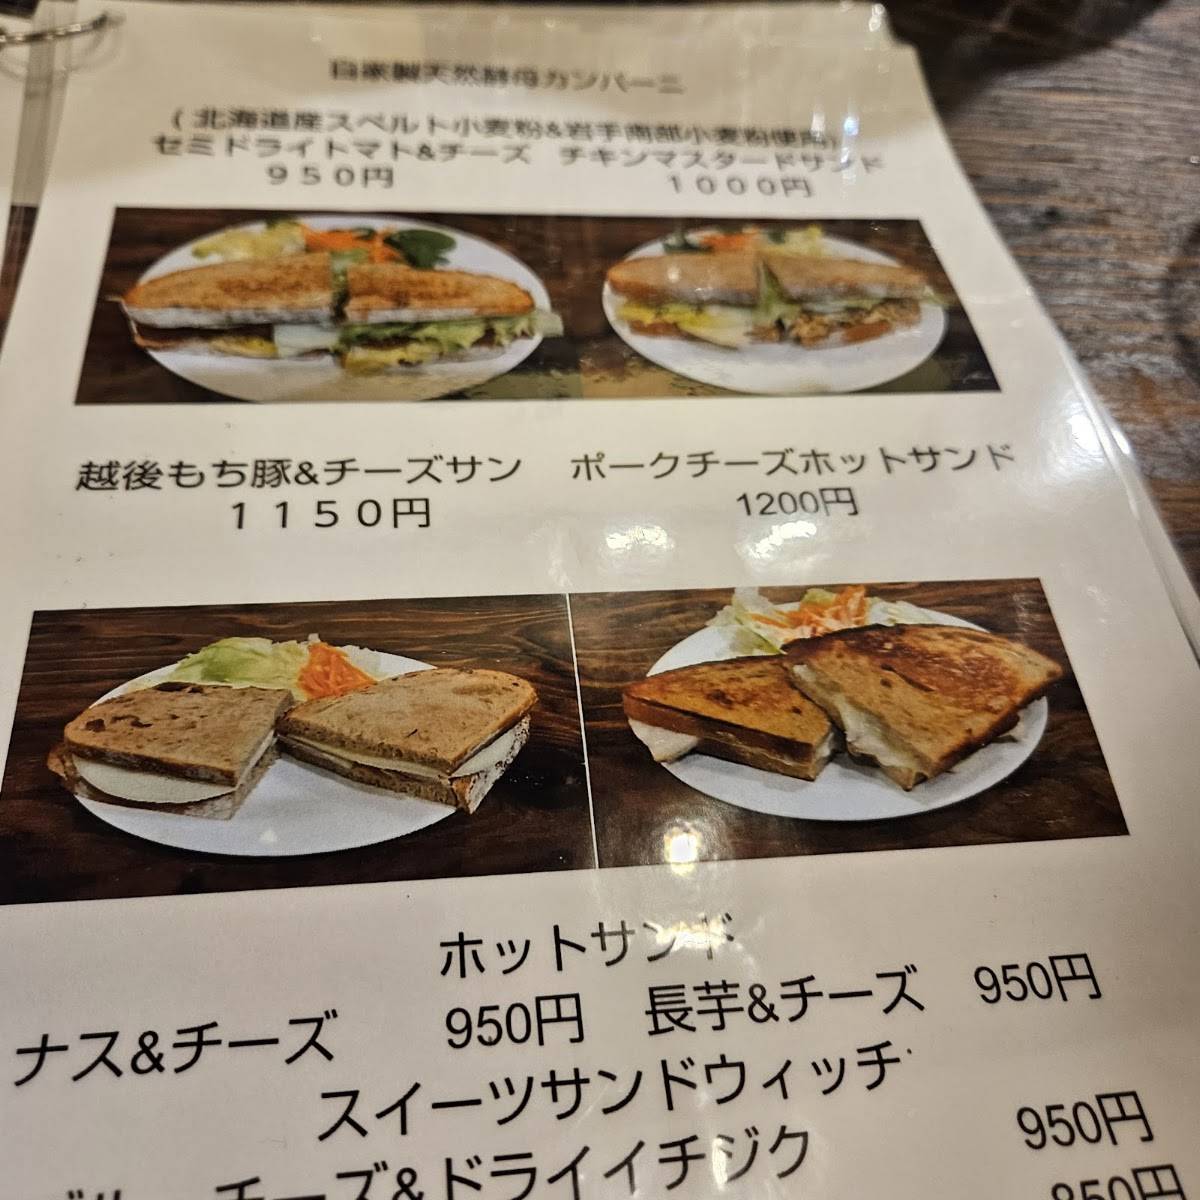 自家製天然酵母カンパーニ
(北海道産スペルト小麦粉&岩手南部小麦粉使用)
セミドライトマト&チーズ　チキンマスタードサンド
９５０円　１０００円
越後もち豚&チーズサン　ポークチーズホットサンド
１１５０円　1200円
ホットサンド
ナス&チーズ　950円　長芋&チーズ　950円
スイーツサンドウィッチ
チーズ&ドライイチジク　950円
850円